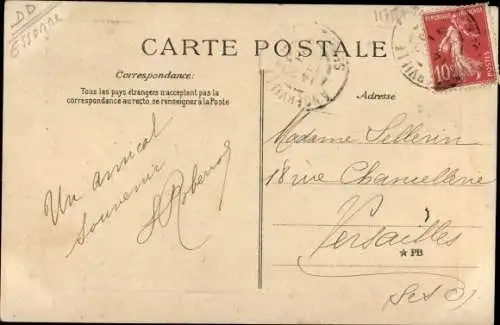 DD
ESSONNE
CARTE POSTALE
Correspondance:
Tous les pays étrangers n'acceptent pas la
correspondance au recto, se renseigner à la Poste
Adresse
10
POSTES
ANGERVILLE
Un amical
souvenir
Madame Sellerin
18 rue Chancellerie
Versailles
★ PB
S et O